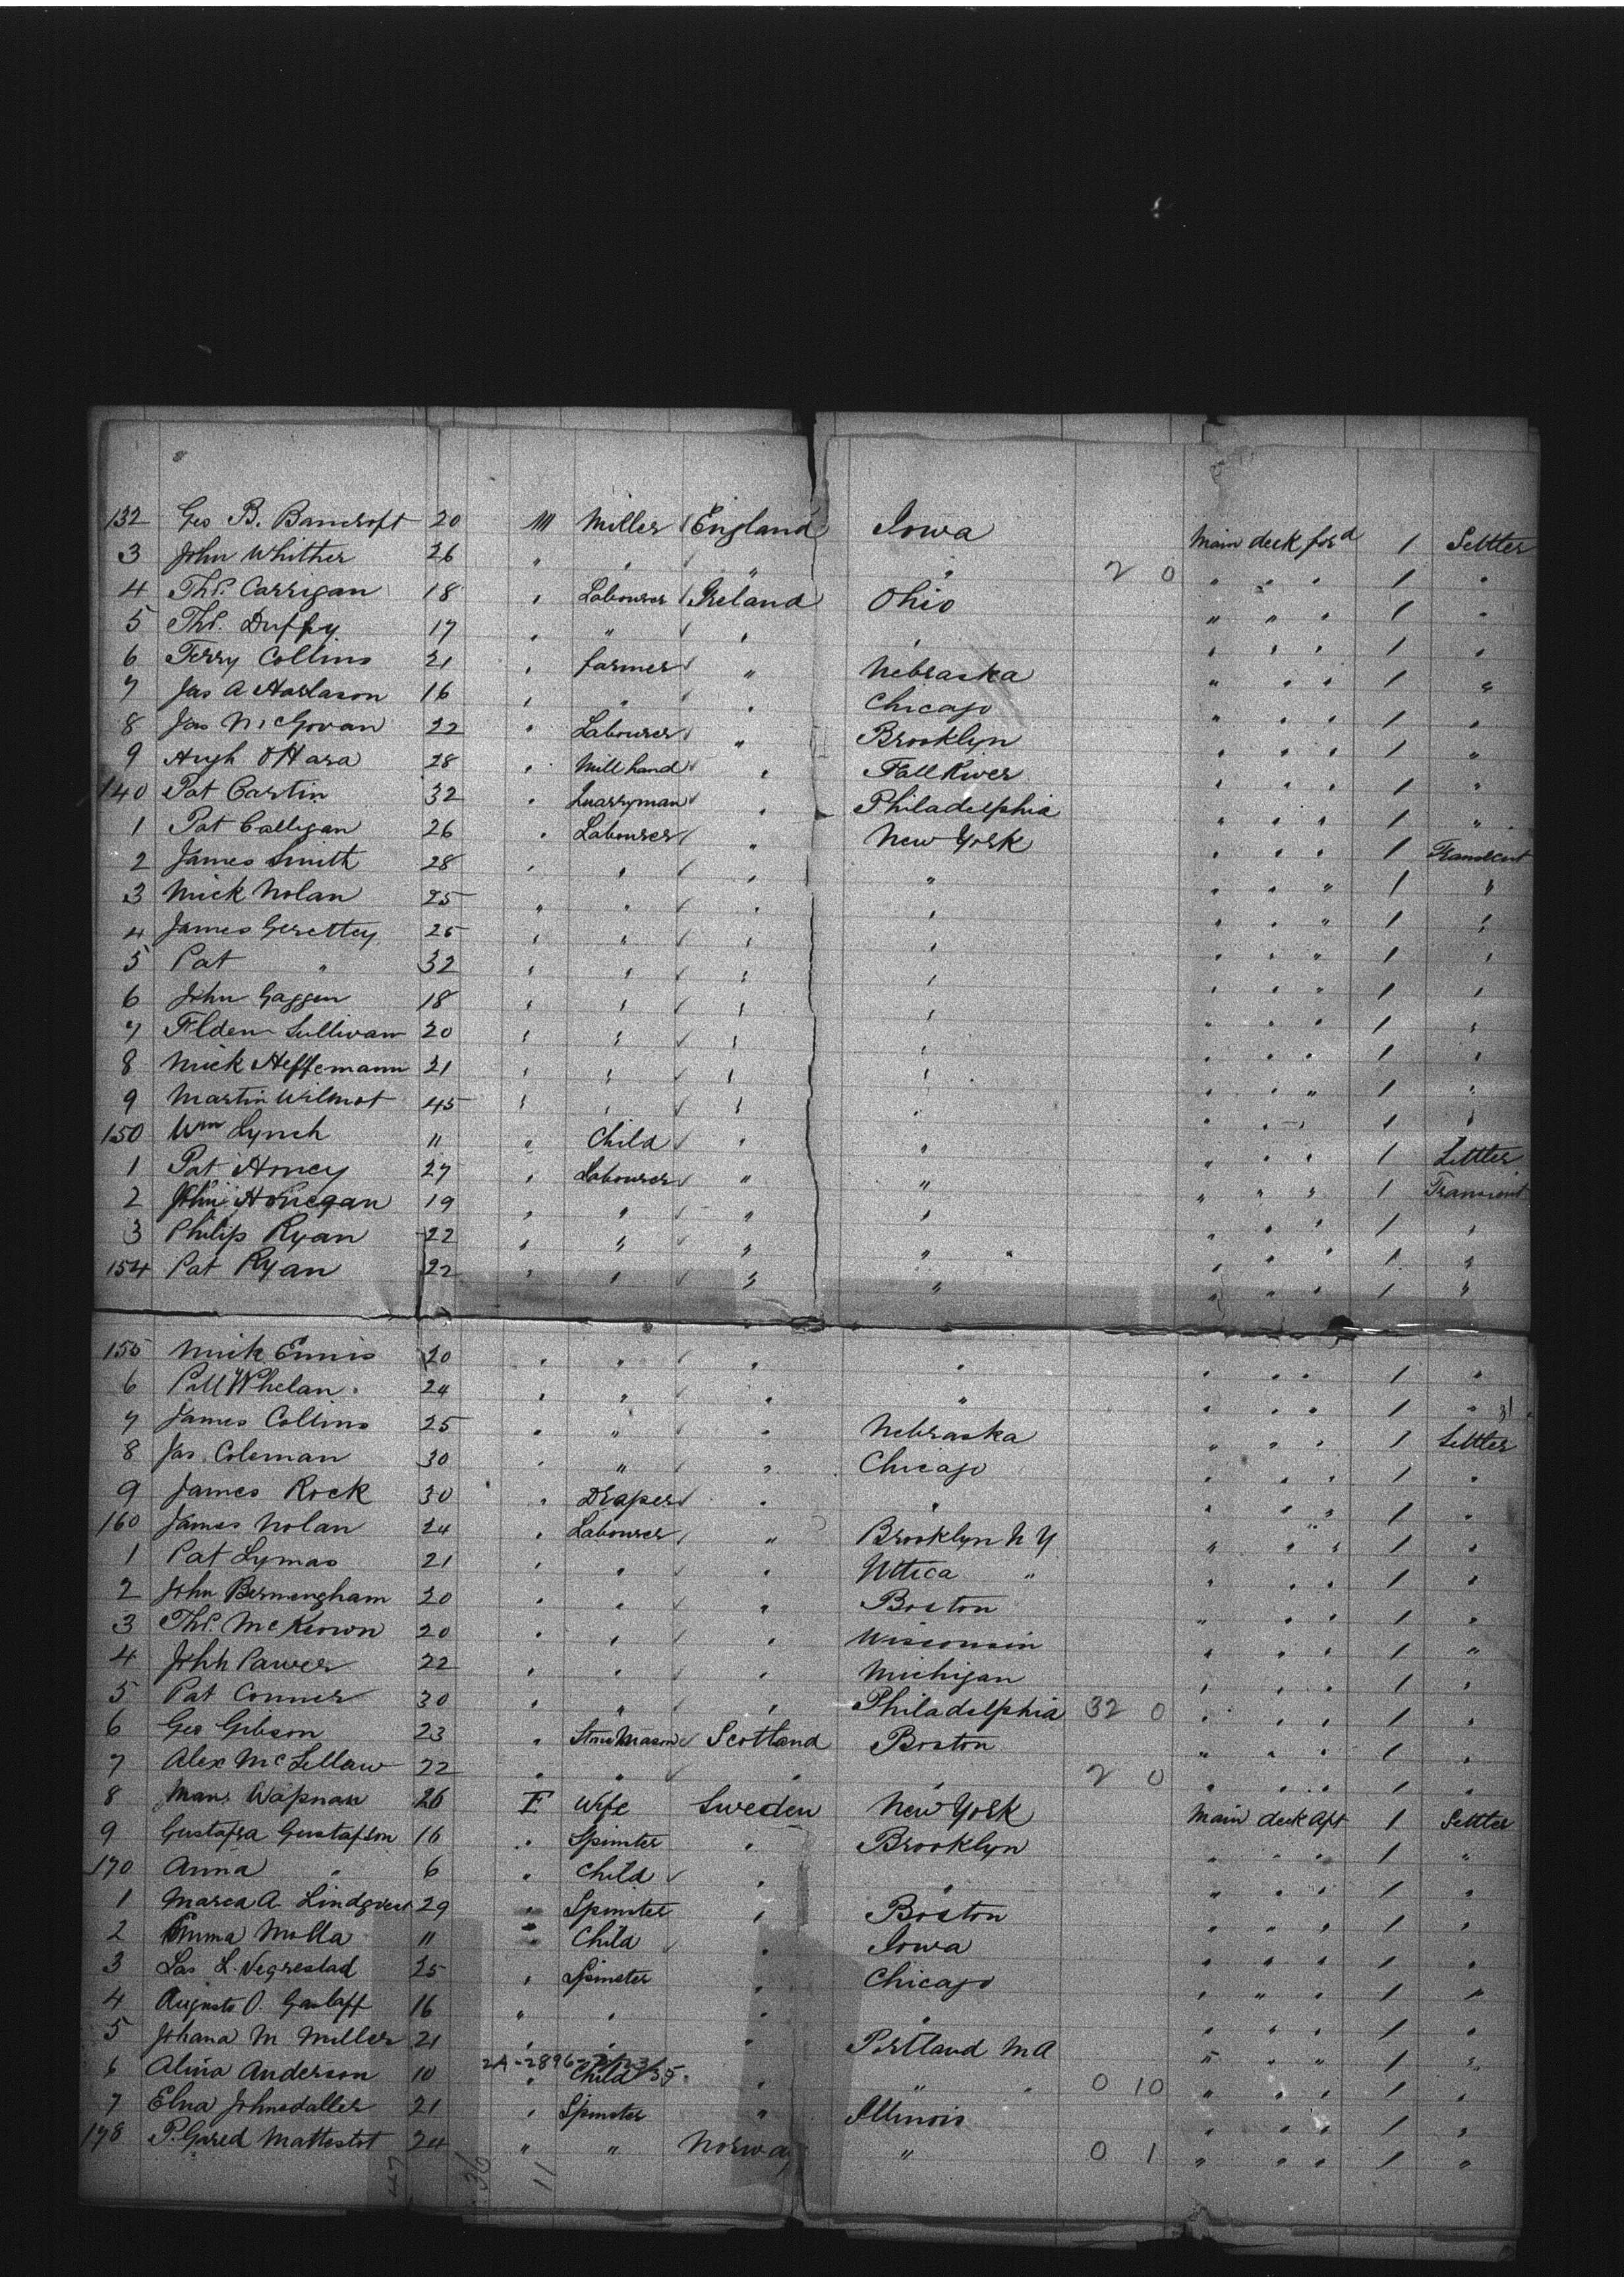 132 Geo B. Bancroft 20 M Miller England Iowa Main deck ford 1 Settler
3 John Whither 26 " " " " 2 0 " " " 1 "
4 Thos. Carrigan 18 " Labourer Ireland Ohio " " " 1 "
5 Thos. Duffy 17 " " " " " " " 1 "
6 Terry Collins 21 " farmer " Nebraska " " " 1 "
7 Jas A Harlason 16 " " " Chicago " " " 1 "
8 Jas McGovan 22 " Labourer " Brooklyn " " " 1 "
9 Hugh O'Hara 28 " Mill hand " Fall River " " " 1 "
140 Pat Cartin 32 " Quarryman " Philadelphia " " " 1 "
1 Pat Calligan 26 " Labourer " New York " " " 1 Transient
2 James Smith 28 " " " " " " " 1 "
3 Mick Nolan 25 " " " " " " " 1 "
4 James Gerettey 25 " " " " " " " 1 "
5 Pat " 32 " " " " " " " 1 "
6 John Gaggen 18 " " " " " " " 1 "
7 Flden Sullivan 20 " " " " " " " 1 "
8 Mick Heffernann 21 " " " " " " " 1 "
9 Martin Wilmot 45 " " " " " " " 1 "
150 Wm Lynch 11 " Child " " " " " 1 Settler
1 Pat Honey 27 " Labourer " " " " " 1 Transient
2 John Honegan 19 " " " " " " " 1 "
3 Philip Ryan 22 " " " " " " " 1 "
154 Pat Ryan 22 " " " " " " " 1 "
155 Mick Ennis 20 " " " " " " " 1 "
6 Patt Whelan 24 " " " " " " " 1 " 31
7 James Collins 25 " " " Nebraska " " " 1 Settler
8 Jas. Coleman 30 " " " Chicago " " " 1 "
9 James Rock 30 " Draper " " " " " 1 "
160 James Nolan 24 " Labourer " Brooklyn N Y " " " 1 "
1 Pat Lymas 21 " " " Uttica " " " " 1 "
2 John Bermengham 20 " " " Boston " " " 1 "
3 Thos. McKeown 20 " " " Wisconsin " " " 1 "
4 John Pawer 22 " " " Michigan " " " 1 "
5 Pat Conner 30 " " " Philadelphia 32 0 " " " 1 "
6 Geo Gibson 23 " Stone Mason Scotland Boston " " " 1 "
7 Alex McLellaw 22 " " " " 2 0 " " " 1 "
8 Mans Wapnan 26 F Wife Sweden New York Main deck aft 1 Settler
9 Gustafra Gustafson 16 " Spinster " Brooklyn " " " 1 "
170 Anna " 6 " Child " " " " " 1 "
1 Marca A. Lindqvest 29 " Spinster " Boston " " " 1 "
2 Emma Molla 11 " Child " Iowa " " " 1 "
3 Las L. Negrestad 25 " Spinster " Chicago " " " 1 "
4 Augusta O. Gaslaff 16 " " " " " " " 1 "
5 Johana M Miller 21 " " " Portland MA " " " 1 "
2A-2896
6 Alina Anderson 10 " Child " " 0 10 " " " 1 "
7 Elna Johnsdaller 21 " Spinster " Illinois " " " 1 "
178 P. Gared Mattestot 24 " " Norway " 0 1 " " " 1 "
36 11